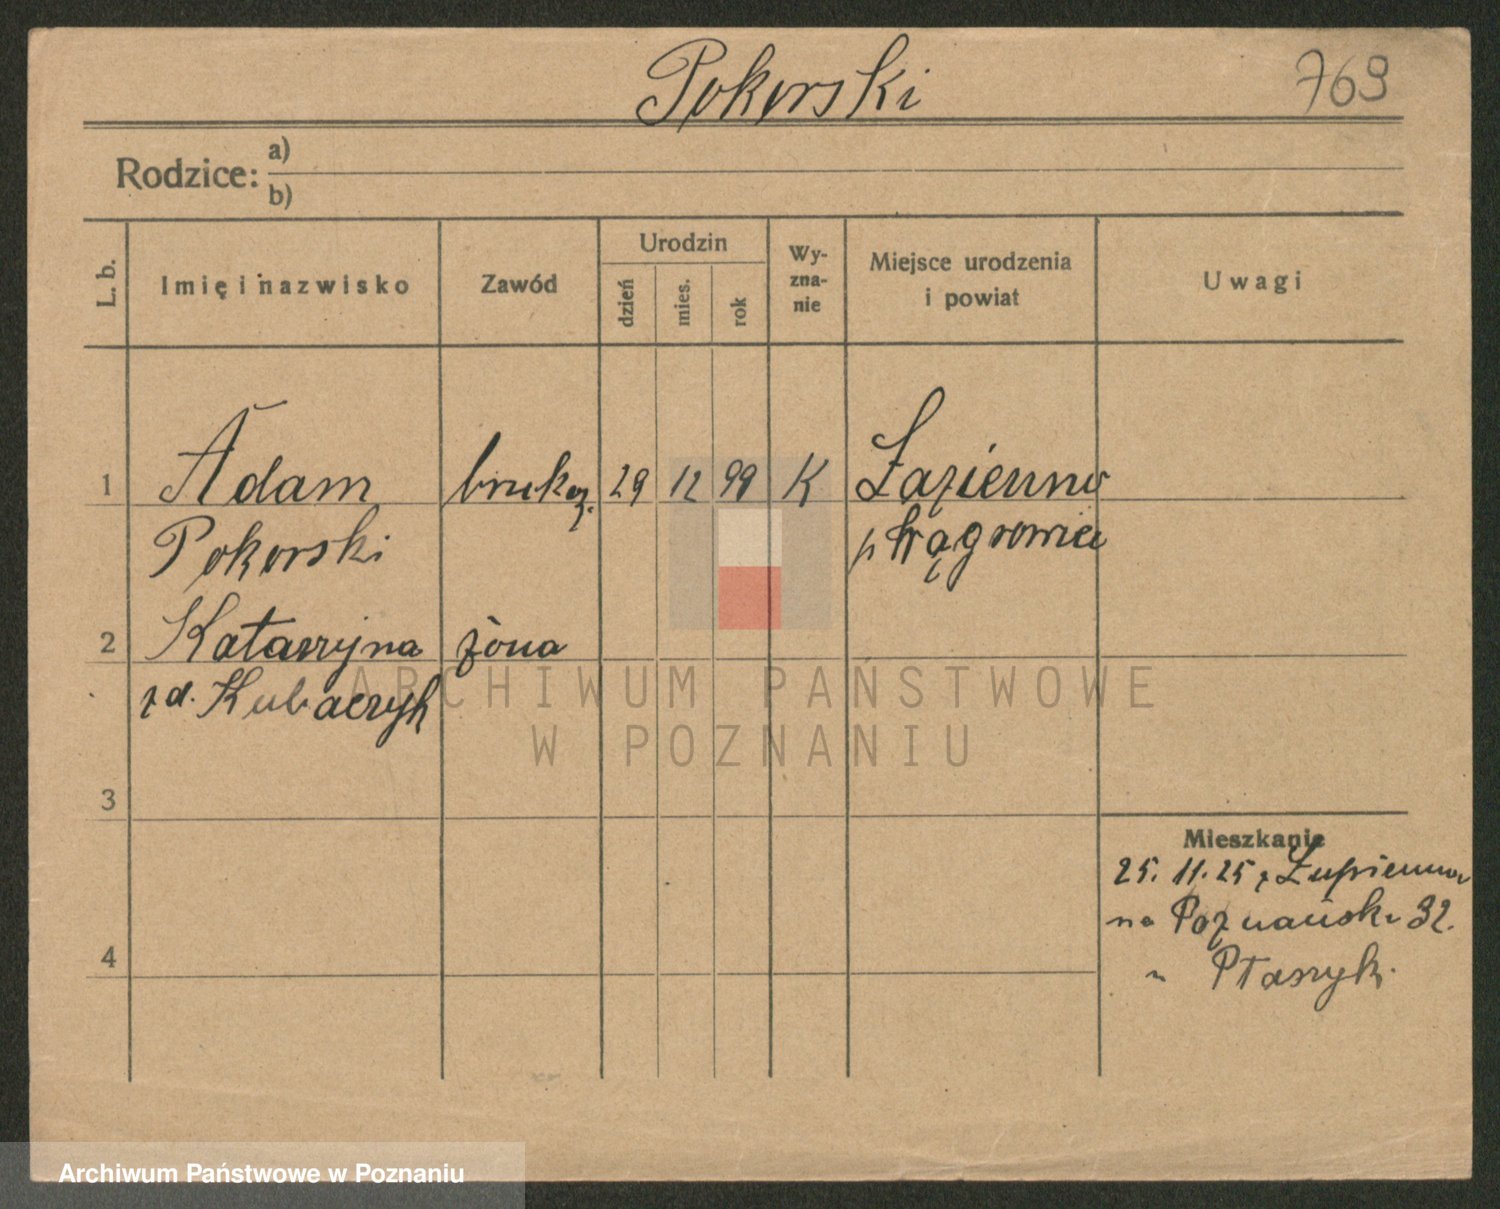 Pokorski 769
Rodzice: a)
b)
L. b. Imię i nazwisko Zawód Urodzin dzień mies. rok Wy-zna-nie Miejsce urodzenia i powiat Uwagi
1 Adam brukarz. 29 12 99 K Łazienno
Pokorski p Wągrowiec
2 Katarzyna żona
z d. Kubaczyk
ARCHIWUM PAŃSTWOWE
W POZNANIU
3
Mieszkanie
25. 11. 25 z
na Poznańsk 32.
4
u Ptaszyk.
Archiwum Państwowe w Poznaniu